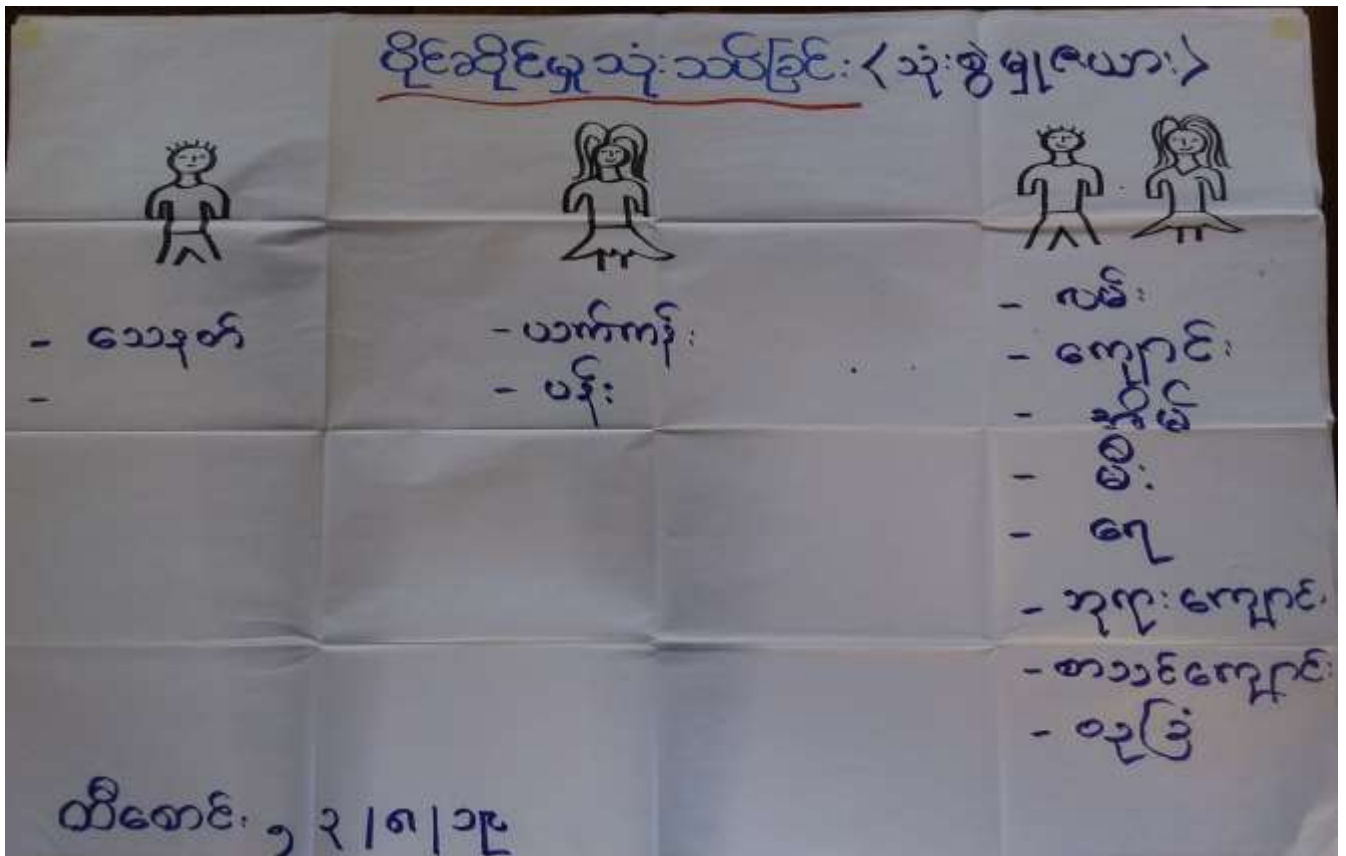 ပိုင်ဆိုင်မှုသုံးသပ်ခြင်း <သုံးစွဲမှုဇယား>
- သေနတ်
-
- ယက်ကန်း
- ပန်း
- လမ်း
- ကျောင်း
- အိမ်
- မီး
- ရေ
- ဘုရားကျောင်း
- စာသင်ကျောင်း
- ဝဥခြံ
ထီစောင်း, ၃/၈/၁၉